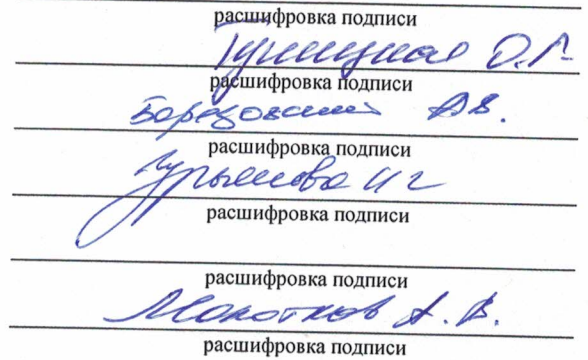 расшифровка подписи
Гуницкая О.Г.
расшифровка подписи
Борозовский А.В.
расшифровка подписи
Гурьянова И Г
расшифровка подписи
расшифровка подписи
Молотков А. В.
расшифровка подписи